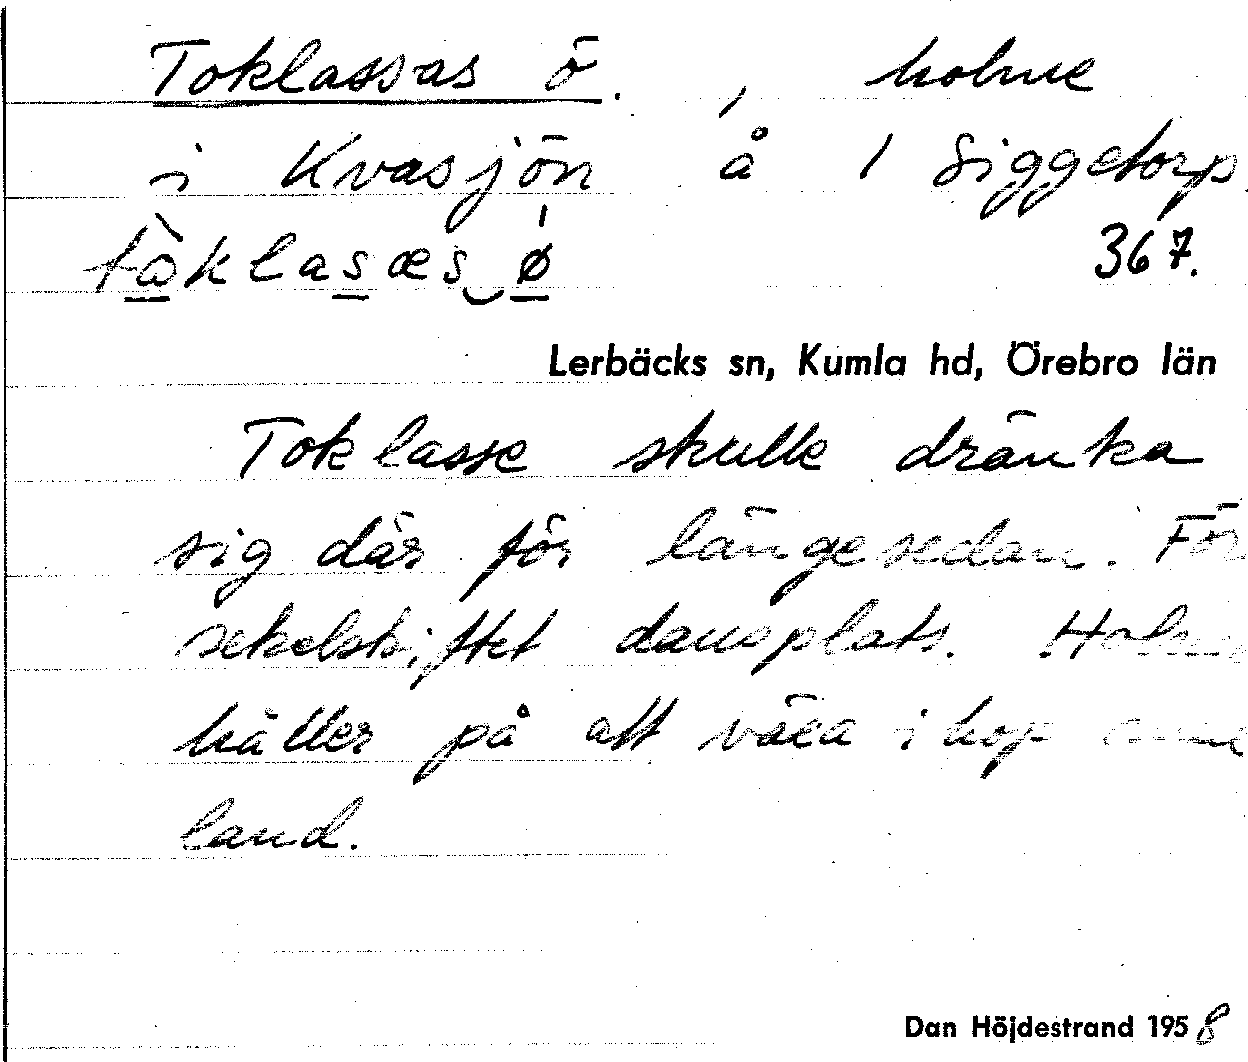 Toklassas ö. , holme
i Kvasjön å 1 Siggetorp.
tòklasæs ǿ
367.
Lerbäcks sn, Kumla hd, Örebro län
Toklasse skulle dränka
sig där för länge sedan. För
sekelskiftet dansplats.
håller på att växa ihop
land.
Dan Höjdestrand 1958